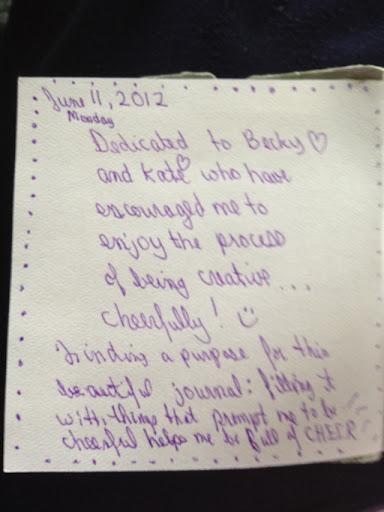 June 11, 2012
Monday
Dedicated to Becky ♡
and Kate ♡ who have
encouraged me to
enjoy the process
of being creative...
cheerfully! ☺
Finding a purpose for this
beautiful journal: filling it
with things that prompt me to be
cheerful helps me be full of CHEER